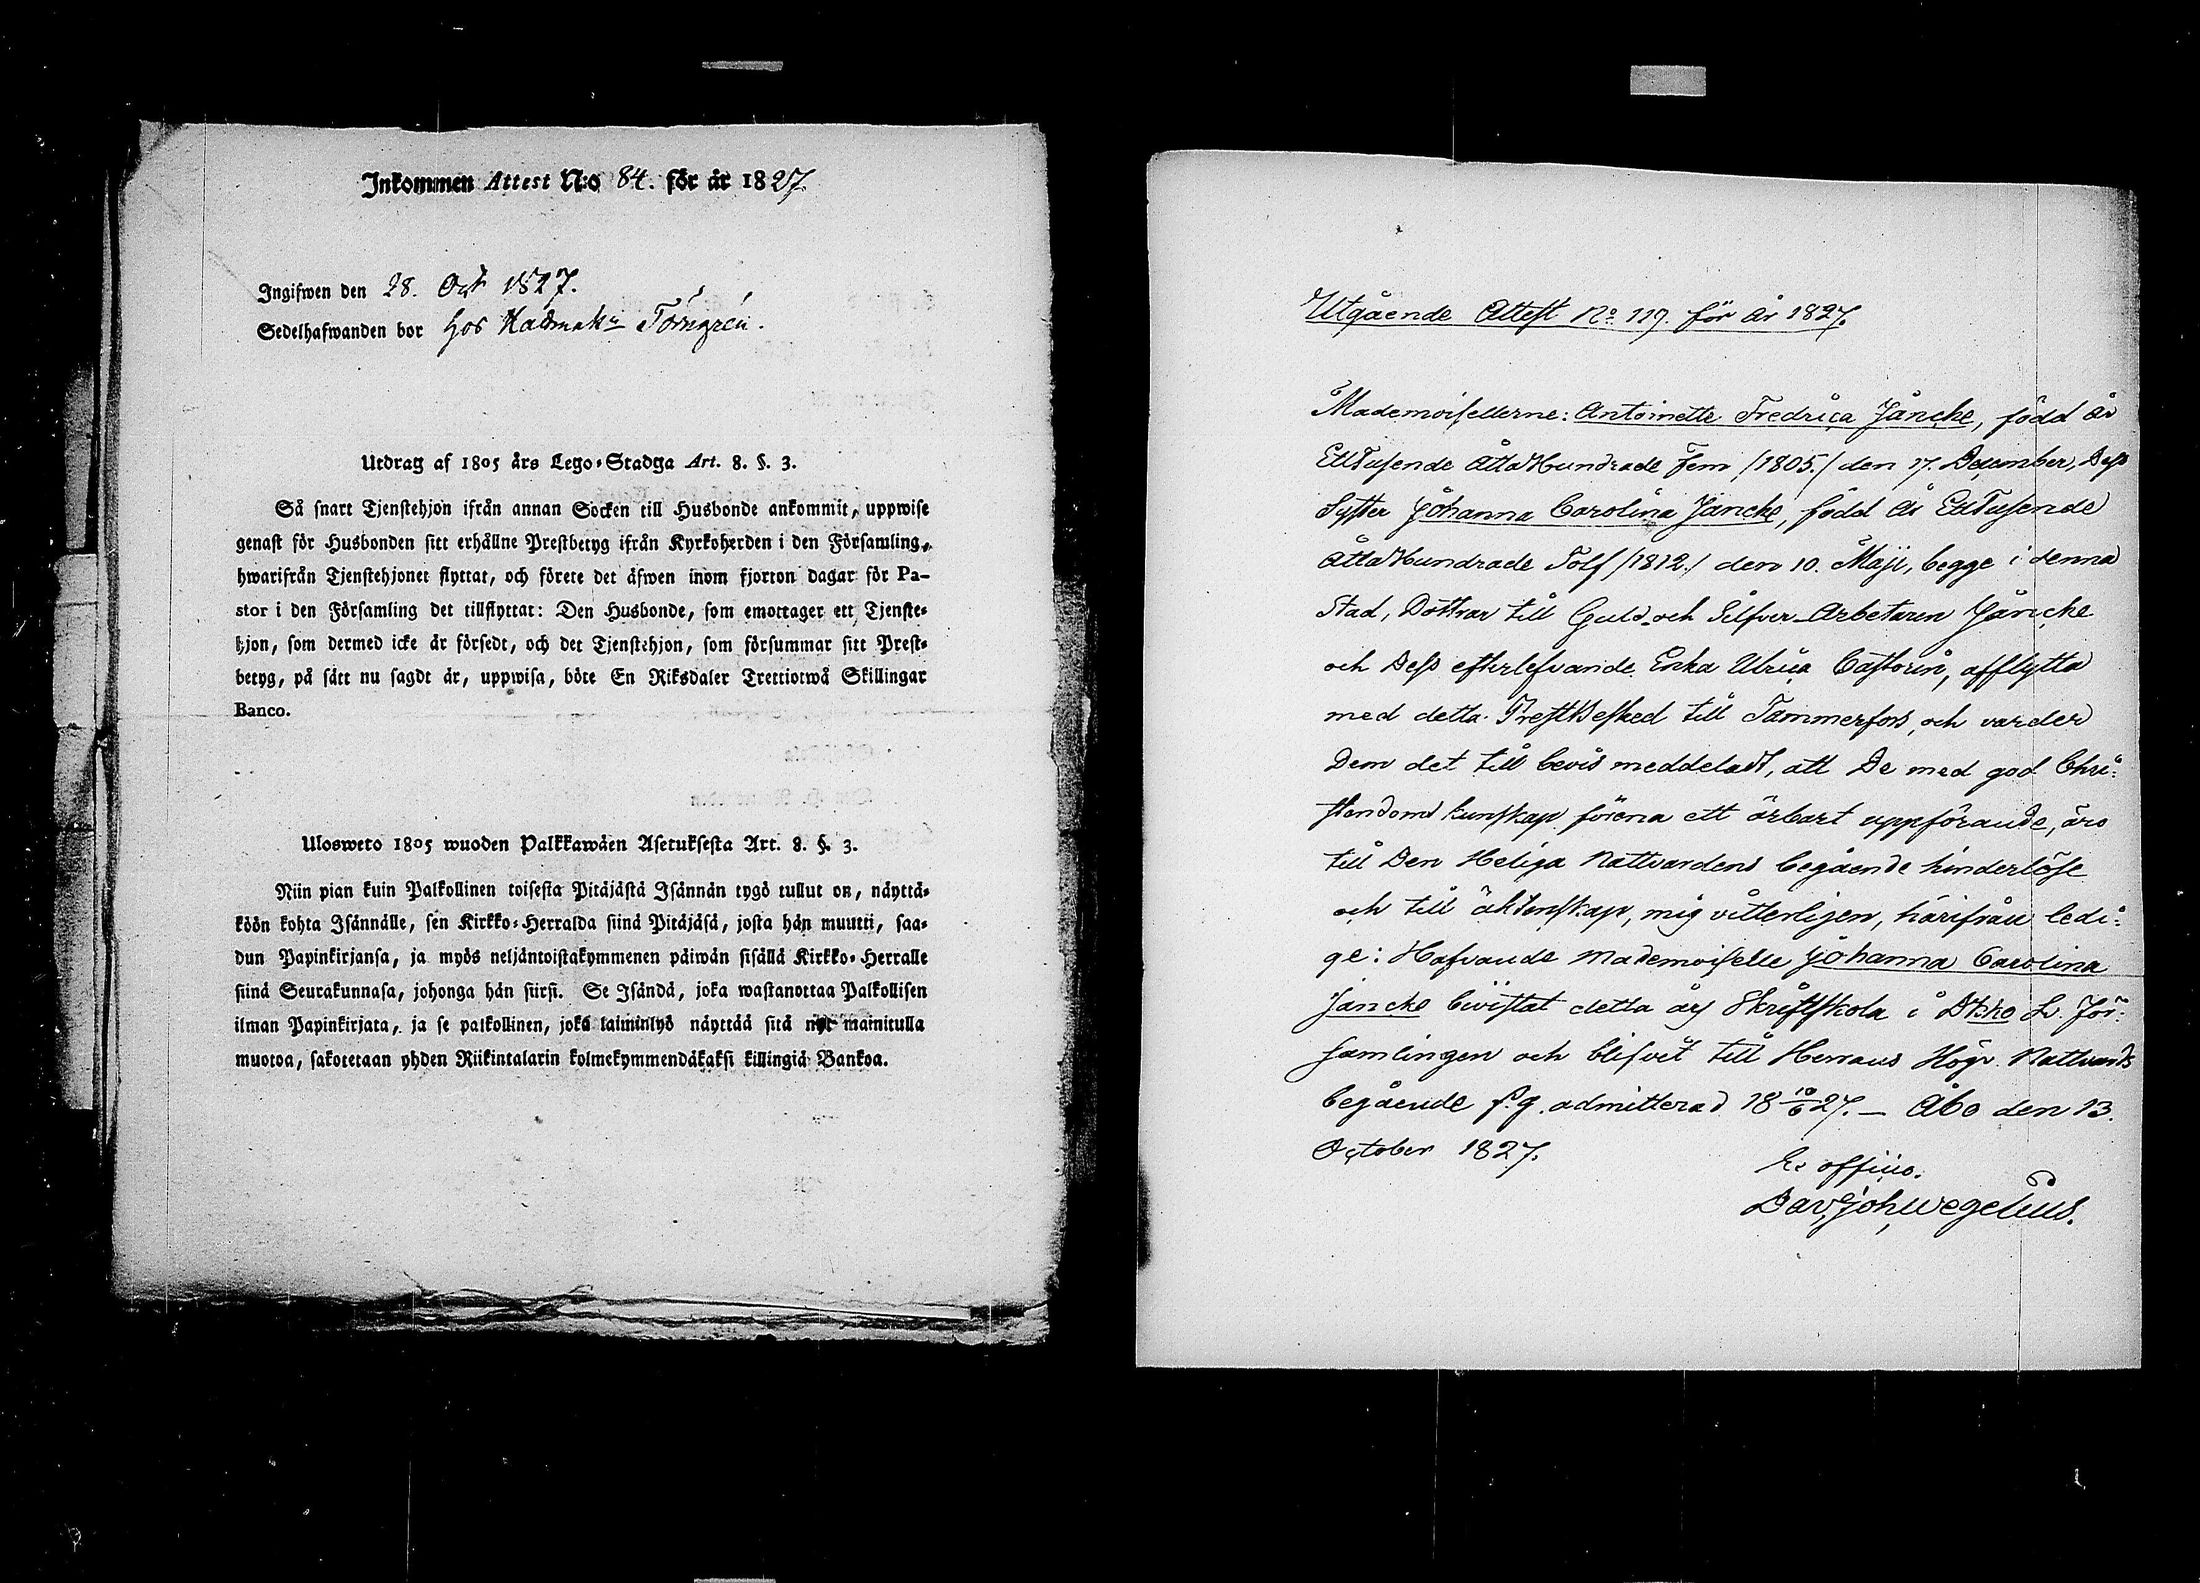 Inkommen Attest N:o 84. för år 1827.
Ingifwen den 28. Oct 1827.
Sedelhafwanden bor hos Törngrén.
Utdrag af 1805 års Lego-Stadga Art. 8. §. 3.
Så snart Tjenstehjon ifrån annan Socken till Husbonde ankommit, uppwise
genast för Husbonden sitt erhållne Prestbetyg ifrån Kyrkoherden i den Församling,
hwarifrån Tjenstehjonet flyttat, och förete det äfwen inom fjorton dagar för Pa-
stor i den Församling det tillflyttat: Den Husbonde, som emottager ett Tjenste-
hjon, som dermed icke är försedt, och det Tjenstehjon, som försummar sitt Prest-
betyg, på sätt nu sagdt är, uppwisa, böte En Riksdaler Trettiotwå Skillingar
Banco.
Ulosweto 1805 wuoden Palkkawäen Asetuksesta Art. 8. §. 3.
Niin pian kuin Palkollinen toisesta Pitäjästä Isännän tygö tullut on, näyttä-
köön kohta Isännälle, sen Kirkko-Herralda siinä Pitäjäsä, josta hän muutti, saa-
dun Papinkirjansa, ja myös neljäntoistakymmenen päiwän sisällä Kirkko-Herralle
siinä Seurakunnasa, johonga hän siirsi. Se Isändä, joka wastanottaa Palkollisen
ilman Papinkirjata, ja se palkollinen, joka laiminlyö näyttää sitä nyt mainitulla
muotoa, sakotetaan yhden Riikintalarin kolmekymmendäkaksi killingiä Bankoa.
Utgående Attest No. 119. för år 1827.
Mademoisellerne: Antoinette Fredrica Jäncke, född år
EttTusende ÅttaHundrade Fem /1805./ den 17. December, Dess
Syster Johanna Carolina Jäncke, född år EttTusende
ÅttaHundrade Tolf /1812./ den 10. Maji, begge i denna
Stad, Döttrar till Guld- och Silfver-Arbetaren Jäncke
och Dess efterlefvande Enka Ulrica Castorin, afflytta
med detta PrestBesked till Tammerfors, och varder
Dem det till bevis meddeladt, att De med god Chri-
stendoms kunskap förena ett ärbart uppförande, äro
till Den Heliga Nattvardens begående hinderlöse
och till äktenskap, mig vitterligen, härifrån ledi-
ge: Hafvande Mademoiselle Johanna Carolina
Jäncke bivistat detta års Skriftskola i Dkko S. För-
samlingen och blifvit till Herrans Högv. Nattvards
begående f. g. admitterad 18 10/6 27. – Åbo den 13.
October 1827.
Ex officio.
Dav. Joh. Wegelius.